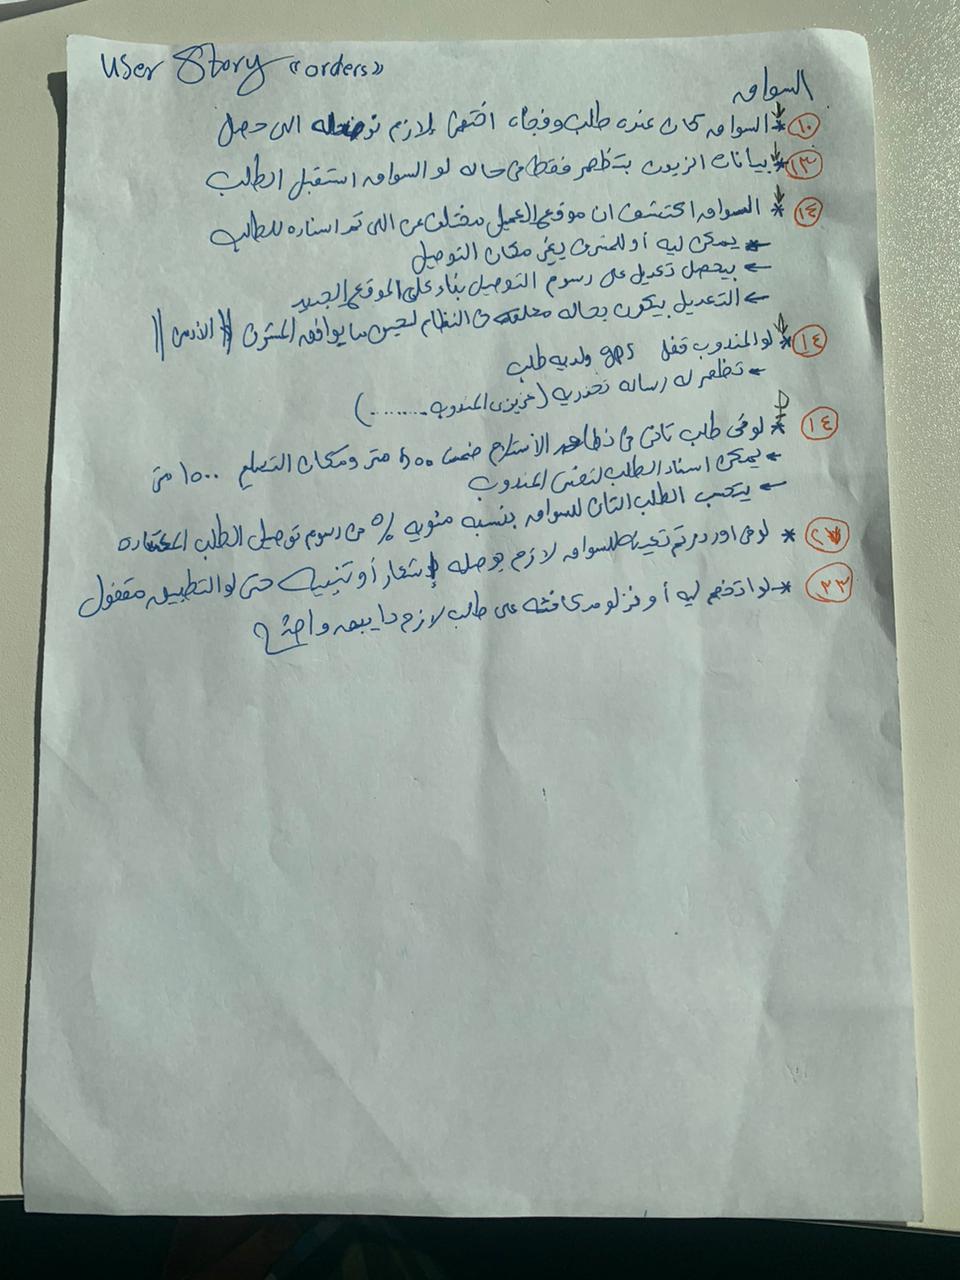 User Story «orders»
السواق
١٠ * السواق كان عنده طلب وفجأه اختفى لازم نوضحله اللى حصل
١٣ * بيانات الزبون بتظهر فقط فى حاله لو السواق استقبل الطلب
١٤ * السواق اكتشف ان موقع العميل مختلف عن اللى تم اسناده للطلب
* يمكن ليه أو للمشرف يغير مكان التوصيل
← بيحصل تعديل على رسوم التوصيل بناء على الموقع الجديد
← التعديل بيكون بحاله معلقه فى النظام لحين ما يوافق المشرف || الأدمن ||
١٤ * لو المندوب قفل gps ولديه طلب
← تظهر له رساله تحذريه (عزيزى المندوب ........)
١٤ * لو فى طلب تانى فى نطاق الاستلام ضمن ٥٠٠ متر ومكان التسليم ١٥٠٠ متر
← يمكن اسناد الطلب لنفس المندوب
← يتحسب الطلب التانى للسواق بنسبه مئويه % من رسوم توصيل الطلب
* لو فى اوردر تم تعينه للسواق لازم يوصله إشعار أو تنبيه حتى لو التطبيق مقفول
٣٣ * لو اتخصم ليه أو نزلو مكافئه على طلب لازم دا يبقى واضح